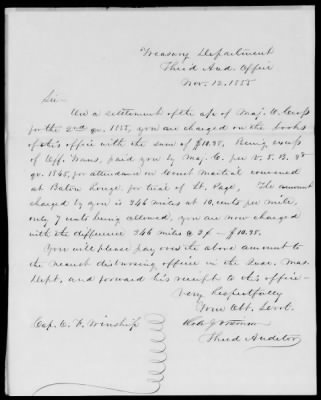 Treasury Department
Third Aud. Office
Nov. 12, 1855
Sir
On a settlement of the a/c of Maj. O. Cross
for the 2nd qr. 1855, you are charged on the books
of this office with the sum of $10.38. Being excess
of Off. Trans. paid you by Maj. C. per v. 5. B.
qr. 1845, for attendance on Court Martial convened
at Baton Rouge, for trial of Lt. Page, The amount
charged by you is 346 miles at 10 cents per mile,
only 7 cents being allowed, you are now charged
with the difference 346 miles @ 3 ¢ - $10.38.
You will please pay over the above amount to
the nearest disbursing officer in the Quar. Mas.
Dept. and forward his receipt to this office -
Very Respectfully
Your Obt. Servt.
Third Auditor
Cap. O. F. Winship